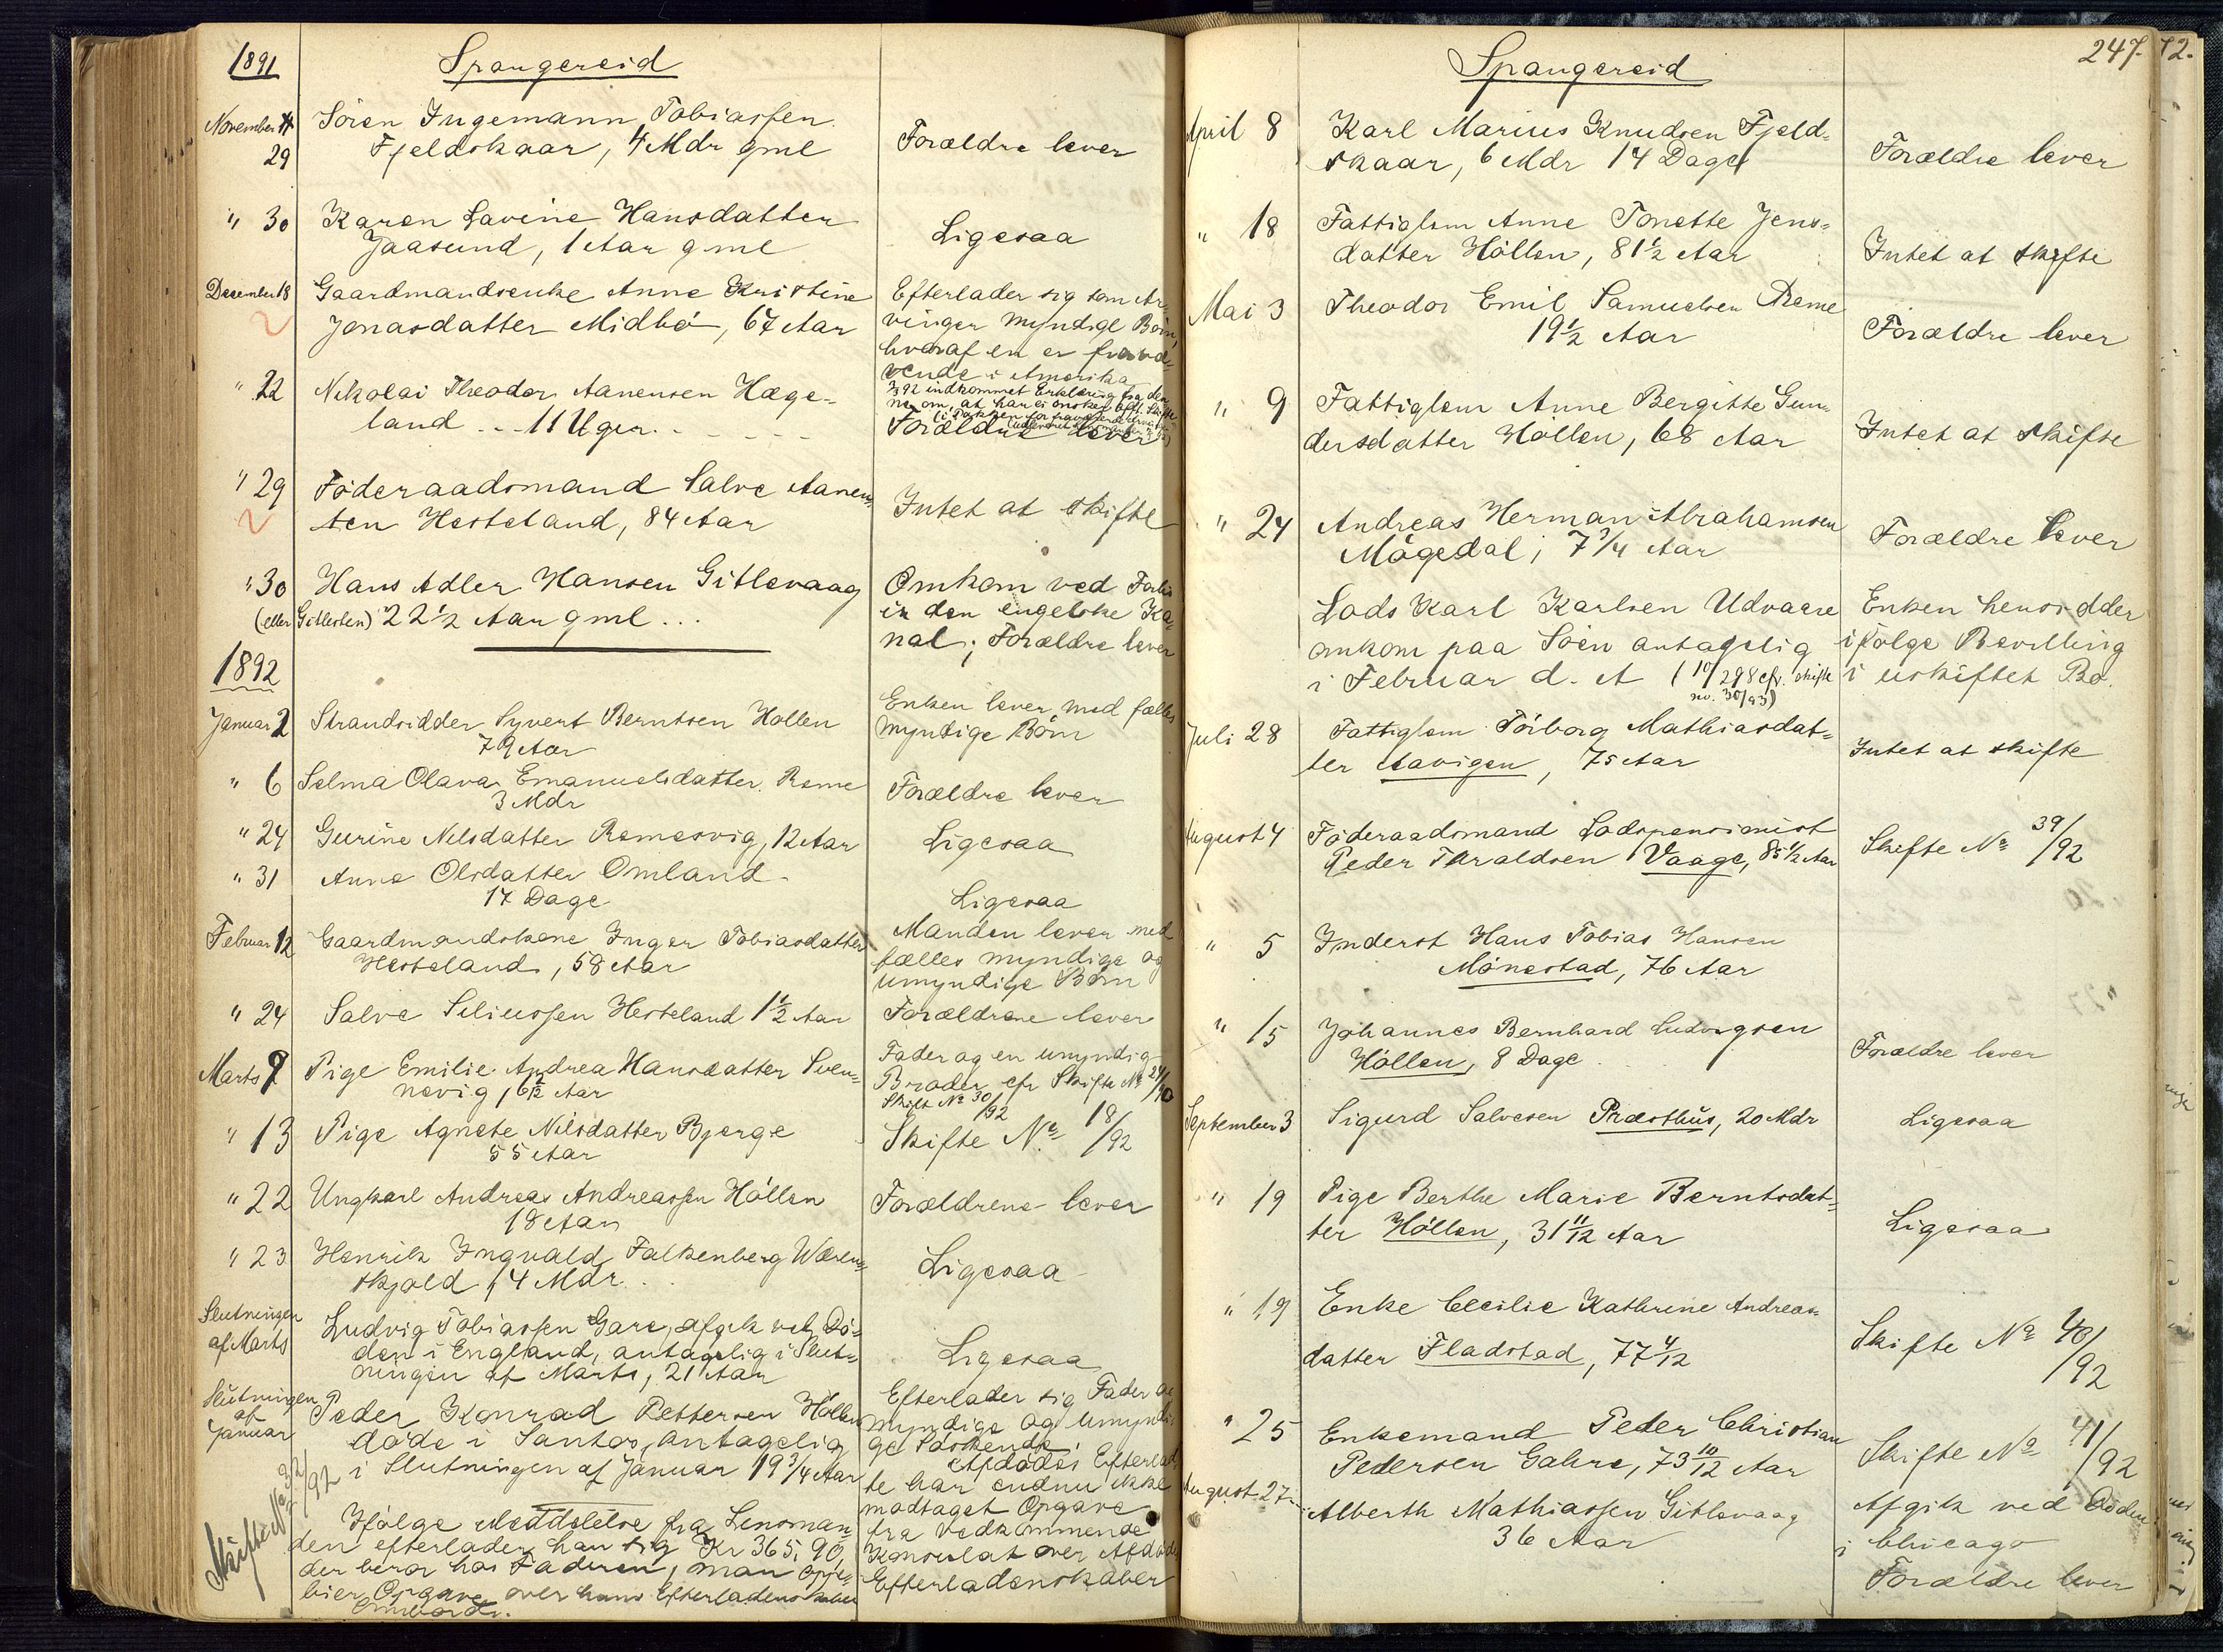 1891
Spangereid
November 4
Sören Ingemann Tobiassen
29
Fjeldskaar, 4 Mdr gml
Forældre lever
" 30
Karen Lavine Hansdatter
Jaasund, 1 Aar gml
Ligesaa
December 18
Gaardmandsenke Anne Kristine
Jonasdatter Midbö, 67 Aar
Efterlader sig som Ar-
vinger myndige Börn,
hvoraf en er fravæ-
rende i Amerika
" 22
Nikolai Theodor Aanensen Hæge-
land - - 11 Uger - - - -
Forældre lever
" 29
Föderaadsmand Salve Aanen-
sen Hesteland, 84 Aar
Intet at skifte
" 30
Hans Adler Hansen Gitlevaag
(eller Gitlesten) 22 1/2 Aar gml...
Omkom ved Forlis
in den engelske Ka-
nal; Forældre lever
1892
Januar 2
Strandsidder Syvert Berntsen Hollen
79 Aar
Enken lever med fælles
myndige Börn
" 6
Selma Olava Emanuelsdatter Reme
3 Mdr
Forældre lever
" 24
Gurine Nilsdatter Remesvig, 12 Aar
Ligesaa
" 31
Anna Olsdatter Omland
17 Dage
Ligesaa
Februar 12
Gaardmandskone Inger Tobiasdatter
Hesteland, 58 Aar
Manden lever med
fælles myndige og
umyndige Börn
" 24
Salve Seliussen Hesteland 1 1/2 Aar
Forældrene lever
Marts 9
Pige Emilie Andrea Hansdatter Sven-
nevig, 6 1/2 Aar
Fader og en umyndig
Broder cfr Skifte No 24/90
Skift No 30/92
" 13
Pige Agnete Nilsdatter Bjerge
55 Aar
Skifte No 18/92
" 22
Ungkarl Andreas Andreassen Höllen
18 Aar
Forældrene lever
" 23
Henrik Ingvald Falkenberg Weren-
skjold, 4 Mdr
Ligesaa
Slutningen
af Marts
Ludvig Tobiassen Gare, afgik ved Dö-
den i England, antagelig i Slut-
ningen af Marts, 21 Aar
Ligesaa
Slutningen
af
Januar
Peder Konrad Pettersen Höllen
döde i Santos, antagelig
i Slutningen af Januar 19 3/4 Aar
Efterlader sig Fader og
myndige og umyndi-
ge Söskende;
Afdödes Efterlad-
te har endnu ikke
modtaget Opgave
fra vedkommende
Konsulat over Afdödes
Efterladenskaber
Skifte No 32/92
Ifölge Meddelelse fra Lensman-
den efterlader han sig Kr 365,90,
der beror hos Faderen, man
Opgave over hans Efterladenskaber
Spangereid
247.
72.
April 8
Karl Marius Knudsen Fjeld-
skaar, 6 Mdr 14 Dage
Forældre lever
" 18
Fattiglem Anne Tonette Jens-
datter Höllen, 81 1/2 Aar
Intet at skifte
Mai 3
Theodor Emil Samuelsen Reme
19 1/2 Aar
Forældre lever
" 9
Fattiglem Anne Bergitte Gun-
dersdatter Hollen, 68 Aar
Intet at skifte
" 24
Andreas Herman Abrahamsen
Mögedal, 7 3/4 Aar
Forældre lever
Lods Karl Karlsen Udvaare
omkom paa Söen antagelig
i Februar d. A (10/298 cfr. skifte
no. 30/93)
Enken hensidder
ifölge Bevilling
i uskiftet Bo.
Juli 28
Fattiglem Törborg Mathiasdat-
ter Aavigen, 75 Aar
Intet at skifte
August 4
Föderaadsmand Lodspensionist
Peder Taraldsen Vaage, 85 1/2 Aar
Skifte No 39/92
" 5
Inderst Hans Tobias Hansen
Mönestad, 76 Aar
" 15
Johannes Bernhard Ludvigsen
Höllen, 8 Dage
Forældre lever
September 3
Sigurd Salvesen Præsthus, 20 Mdr
Ligesaa
" 19
Pige Berthe Marie Berntsdat-
ter Höllen, 31 11/12 Aar
Ligesaa
" 19
Enke Cecilie Kathrine Andreas-
datter Fladstad, 77 4/12
Skifte No 40/92
" 25
Enkemand Peder Christian
Pedersen Gahre, 73 10/12 Aar
Skifte No 41/92
August 27
Alberth Mathiassen Gitlevaag
36 Aar
Afgik ved Döden
i Chicago
Forældre lever